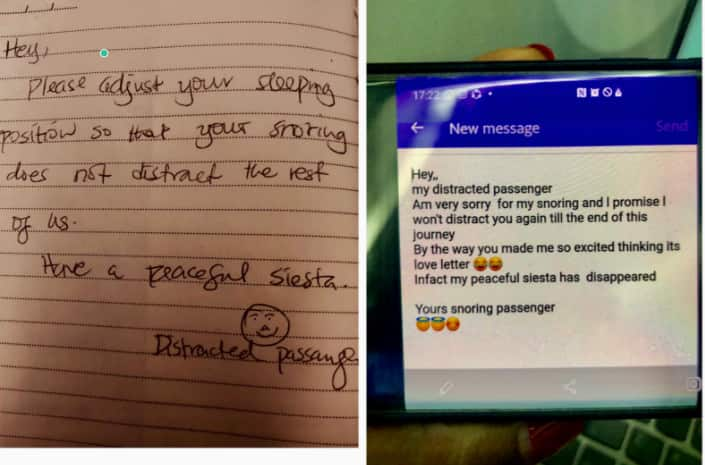 Hey,
Please adjust your sleeping
position so that your snoring
does not distract the rest
of us.
Have a peaceful siesta.
Distracted passange
17:22
New message
Send
Hey,,
my distracted passenger
Am very sorry for my snoring and I promise I
won't distract you again till the end of this
journey
By the way you made me so excited thinking its
love letter 😂😂
Infact my peaceful siesta has disappeared
Yours snoring passenger